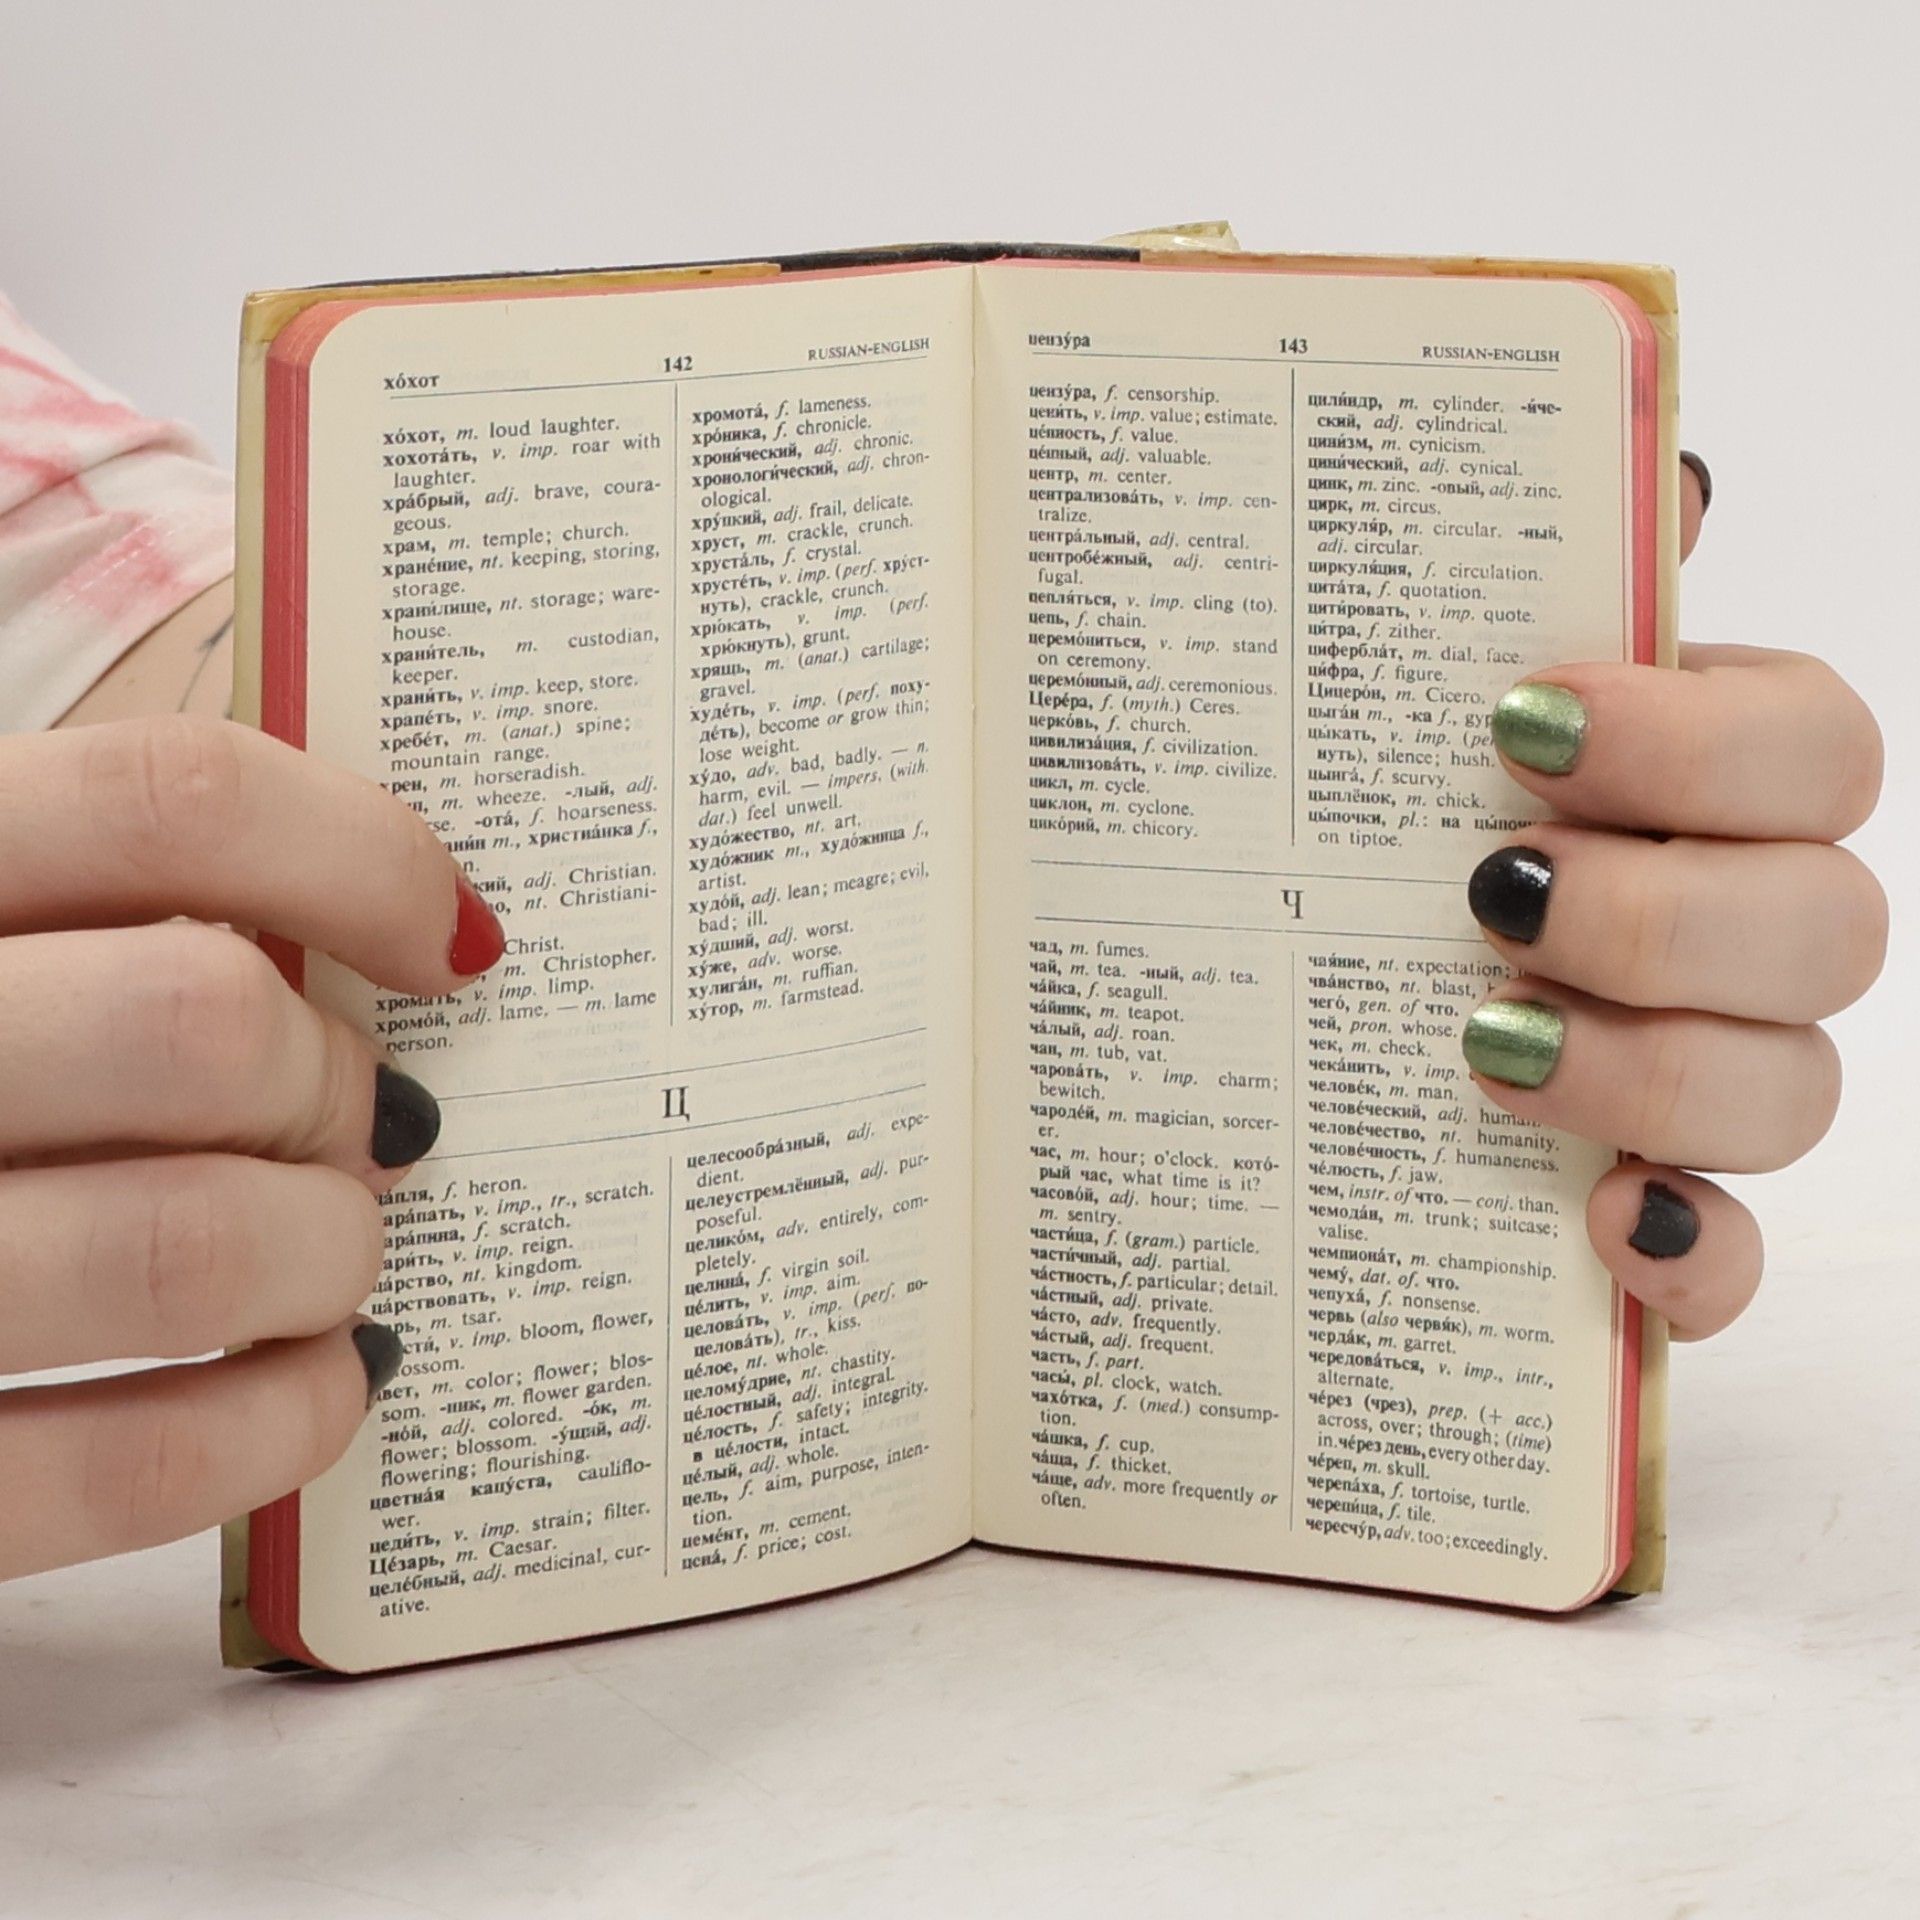 хо́хот 142 RUSSIAN-ENGLISH
хо́хот, m. loud laughter.
хохота́ть, v. imp. roar with
laughter.
хра́брый, adj. brave, coura-
geous.
храм, m. temple; church.
хране́ние, nt. keeping, storing,
storage.
храни́лище, nt. storage; ware-
house.
храни́тель, m. custodian,
keeper.
храни́ть, v. imp. keep, store.
храпе́ть, v. imp. snore.
хребе́т, m. (anat.) spine;
mountain range.
хрен, m. horseradish.
m. wheeze. -лый, adj.
-ота́, f. hoarseness.
m., христиа́нка f.,
adj. Christian.
nt. Christiani-
Christ.
m. Christopher.
хрома́ть, v. imp. limp.
хромо́й, adj. lame. — m. lame
person.
хромота́, f. lameness.
хро́ника, f. chronicle.
хрони́ческий, adj. chronic.
хронологи́ческий, adj. chron-
ological.
хру́пкий, adj. frail, delicate.
хруст, m. crackle, crunch.
хруста́ль, f. crystal.
хрусте́ть, v. imp. (perf. хру́ст-
нуть), crackle, crunch.
хрю́кать, v. imp. (perf.
хрю́кнуть), grunt.
хрящ, m. (anat.) cartilage;
gravel.
худе́ть, v. imp. (perf. поху-
де́ть), become or grow thin;
lose weight.
ху́до, adv. bad, badly. — n.
harm, evil. — impers. (with.
dat.) feel unwell.
худо́жество, nt. art.
худо́жник m., худо́жница f.,
artist.
худо́й, adj. lean; meagre; evil,
bad; ill.
ху́дший, adj. worst.
ху́же, adv. worse.
хулига́н, m. ruffian.
ху́тор, m. farmstead.
Ц
ца́пля, f. heron.
цара́пать, v. imp., tr., scratch.
цара́пина, f. scratch.
цари́ть, v. imp. reign.
ца́рство, nt. kingdom.
ца́рствовать, v. imp. reign.
царь, m. tsar.
v. imp. bloom, flower,
blossom.
цвет, m. color; flower; blos-
som. -ник, m. flower garden.
-но́й, adj. colored. -о́к, m.
flower; blossom. -у́щий, adj.
flowering; flourishing.
цветна́я капу́ста, cauliflo-
wer.
цеди́ть, v. imp. strain; filter.
Це́зарь, m. Caesar.
целе́бный, adj. medicinal, cur-
ative.
целесообра́зный, adj. expe-
dient.
целеустремлённый, adj. pur-
poseful.
целико́м, adv. entirely, com-
pletely.
целина́, f. virgin soil.
це́лить, v. imp. aim.
целова́ть, v. imp. (perf. по-
целова́ть), tr., kiss.
це́лое, nt. whole.
целому́дрие, nt. chastity.
це́лостный, adj. integral.
це́лость, f. safety; integrity.
в це́лости, intact.
це́лый, adj. whole.
цель, f. aim, purpose, inten-
tion.
цеме́нт, m. cement.
цена́, f. price; cost.
цензу́ра 143 RUSSIAN-ENGLISH
цензу́ра, f. censorship.
цени́ть, v. imp. value; estimate.
це́нность, f. value.
це́нный, adj. valuable.
центр, m. center.
централизова́ть, v. imp. cen-
tralize.
центра́льный, adj. central.
центробе́жный, adj. centri-
fugal.
цепля́ться, v. imp. cling (to).
цепь, f. chain.
церемо́ниться, v. imp. stand
on ceremony.
церемо́нный, adj. ceremonious.
Цере́ра, f. (myth.) Ceres.
церко́вь, f. church.
цивилиза́ция, f. civilization.
цивилизова́ть, v. imp. civilize.
цикл, m. cycle.
циклон, m. cyclone.
цико́рий, m. chicory.
цили́ндр, m. cylinder. -и́че-
ский, adj. cylindrical.
цини́зм, m. cynicism.
цини́ческий, adj. cynical.
цинк, m. zinc. -овый, adj. zinc.
цирк, m. circus.
циркуля́р, m. circular. -ный,
adj. circular.
циркуля́ция, f. circulation.
цита́та, f. quotation.
цити́ровать, v. imp. quote.
ци́тра, f. zither.
цифербла́т, m. dial, face.
ци́фра, f. figure.
Цицеро́н, m. Cicero.
цыга́н m., -ка f.,
цы́кать, v. imp.
нуть), silence; hush.
цынга́, f. scurvy.
цыплёнок, m. chick.
цы́почки, pl.: на цы́почки
on tiptoe.
Ч
чад, m. fumes.
чай, m. tea. -ный, adj. tea.
ча́йка, f. seagull.
ча́йник, m. teapot.
ча́лый, adj. roan.
чан, m. tub, vat.
чарова́ть, v. imp. charm;
bewitch.
чароде́й, m. magician, sorcer-
er.
час, m. hour; o'clock. кото́-
рый час, what time is it?
часово́й, adj. hour; time. —
m. sentry.
части́ца, f. (gram.) particle.
части́чный, adj. partial.
ча́стность, f. particular; detail.
ча́стный, adj. private.
ча́сто, adv. frequently.
ча́стый, adj. frequent.
часть, f. part.
часы́, pl. clock, watch.
чахо́тка, f. (med.) consump-
tion.
ча́шка, f. cup.
ча́ща, f. thicket.
ча́ще, adv. more frequently or
often.
ча́яние, nt. expectation;
чва́нство, nt. blast,
чего́, gen. of что.
чей, pron. whose.
чек, m. check.
чека́нить, v. imp.
челове́к, m. man.
челове́ческий, adj. human.
челове́чество, nt. humanity.
челове́чность, f. humaneness.
че́люсть, f. jaw.
чем, instr. of что. — conj. than.
чемода́н, m. trunk; suitcase;
valise.
чемпиона́т, m. championship.
чему́, dat. of. что.
чепуха́, f. nonsense.
червь (also червя́к), m. worm.
черда́к, m. garret.
чередова́ться, v. imp., intr.,
alternate.
че́рез (чрез), prep. (+ acc.)
across, over; through; (time)
in. че́рез день, every other day.
че́реп, m. skull.
черепа́ха, f. tortoise, turtle.
черепи́ца, f. tile.
чересчу́р, adv. too; exceedingly.